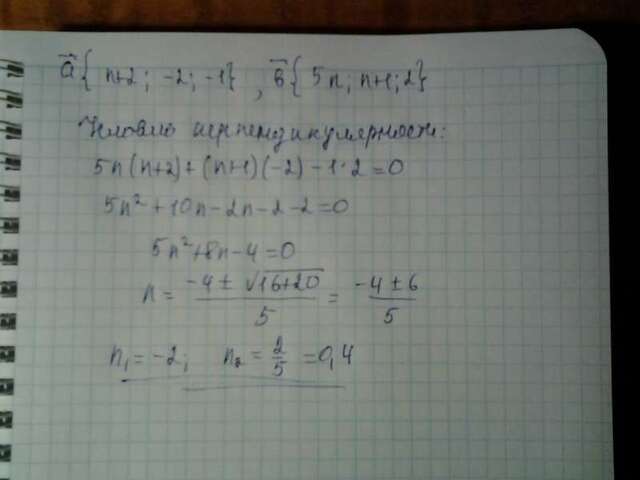 a⃗{ n+2; -2; -1} , в⃗{ 5n; n+1; 2}
Условие перпендикулярности:
5n(n+2)+(n+1)(-2)-1·2=0
5n²+10n-2n-2-2=0
5n²+8n-4=0
n= (-4±√16+20)/5 = (-4±6)/5
n₁=-2; n₂=2/5=0,4